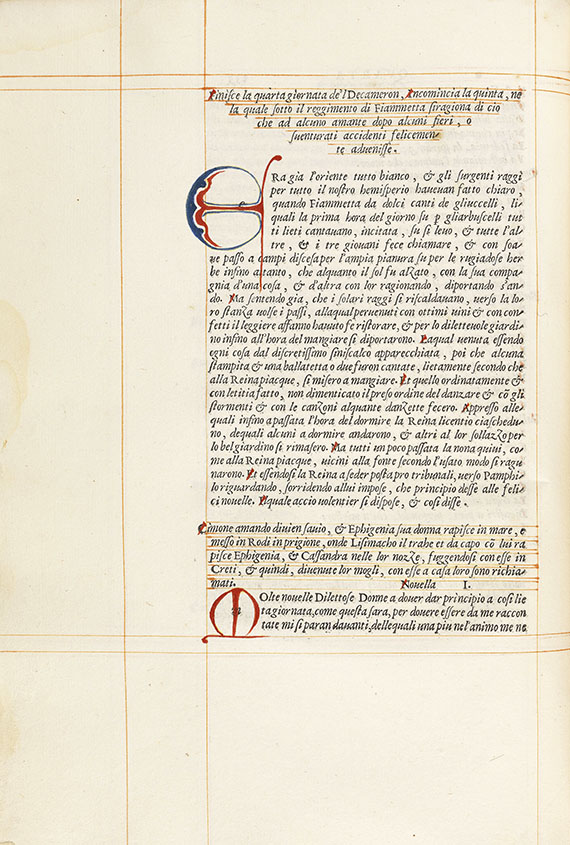 Finisce la quarta giornata de'l Decameron, Incomincia la quinta, ne
la quale sotto il reggimento di Fiammetta si ragiona di cio
che ad alcuno amante dopo alcuni fieri, o
suenturati accidenti felicemen-
te aduenisse.
ERa gia l'oriente tutto bianco, & gli surgenti raggi
per tutto il nostro hemisperio haueuan fatto chiaro,
quando Fiammetta da dolci canti de gliuccelli, li-
quali la prima hora del giorno su p gliarbuscelli tut
ti lieti cantauano, incitata, su si leuo, & tutte l'al
tre, & i tre giouani fece chiamare, & con soa-
ue passo a campi discesa per l'ampia pianura su per le rugiadose her
be infino a tanto, che alquanto il sol fu alzato, con la sua compa-
gnia d'una cosa, & d'altra con lor ragionando, diportando s'an-
do. Ma sentendo gia, che i solari raggi si riscaldauano, uerso la lo-
ro stanza uolse i passi, allaqual peruenuti con ottimi uini & con con-
fetti il leggiere affanno hauuto fe ristorare, & per lo diletteuole giardi-
no infino all'hora del mangiare si diportarono. Laqual uenuta essendo
ogni cosa dal discretissimo siniscalco apparecchiata, poi che alcuna
stampita & una ballatetta o due furon cantate, lietamente secondo che
alla Reina piacque, si misero a mangiare. Et quello ordinatamente &
con letitia fatto, non dimenticato il preso ordine del danzare & cõ gli
stormenti & con le canzoni alquante danzette fecero. Appresso alle
quali infino a passata l'hora del dormire la Reina licentio ciaschedu-
no, dequali alcuni a dormire andarono, & altri al lor sollazzo per
lo bel giardino si rimasero. Ma tutti un poco passata la nona quiui, co-
me alla Reina piacque, uicini alla fonte secondo l'usato modo si ragu
narono. Et essendosi la Reina a seder posta pro tribunali, uerso Pamphi-
lo riguardando, sorridendo allui impose, che principio desse alle feli-
ci nouelle. Il quale accio uolentier si dispose, & cosi disse.
Cimone amando diuien sauio, & Ephigenia sua donna rapisce in mare, e
messo in Rodi in prigione, onde Lisimacho il trahe et da capo cõ lui ra
pisce Ephigenia, & Cassandra nelle lor nozze, fuggendosi con esse in
Creti, & quindi, diuenute lor mogli, con esse a casa loro sono richia-
mati. Nouella I.
MOlte nouelle Dilettose Donne a douer dar principio a cosi lie
ta giornata, come questa sara, per douere essere da me raccon
tate mi si paran dauanti, dellequali una piu nel'animo me ne